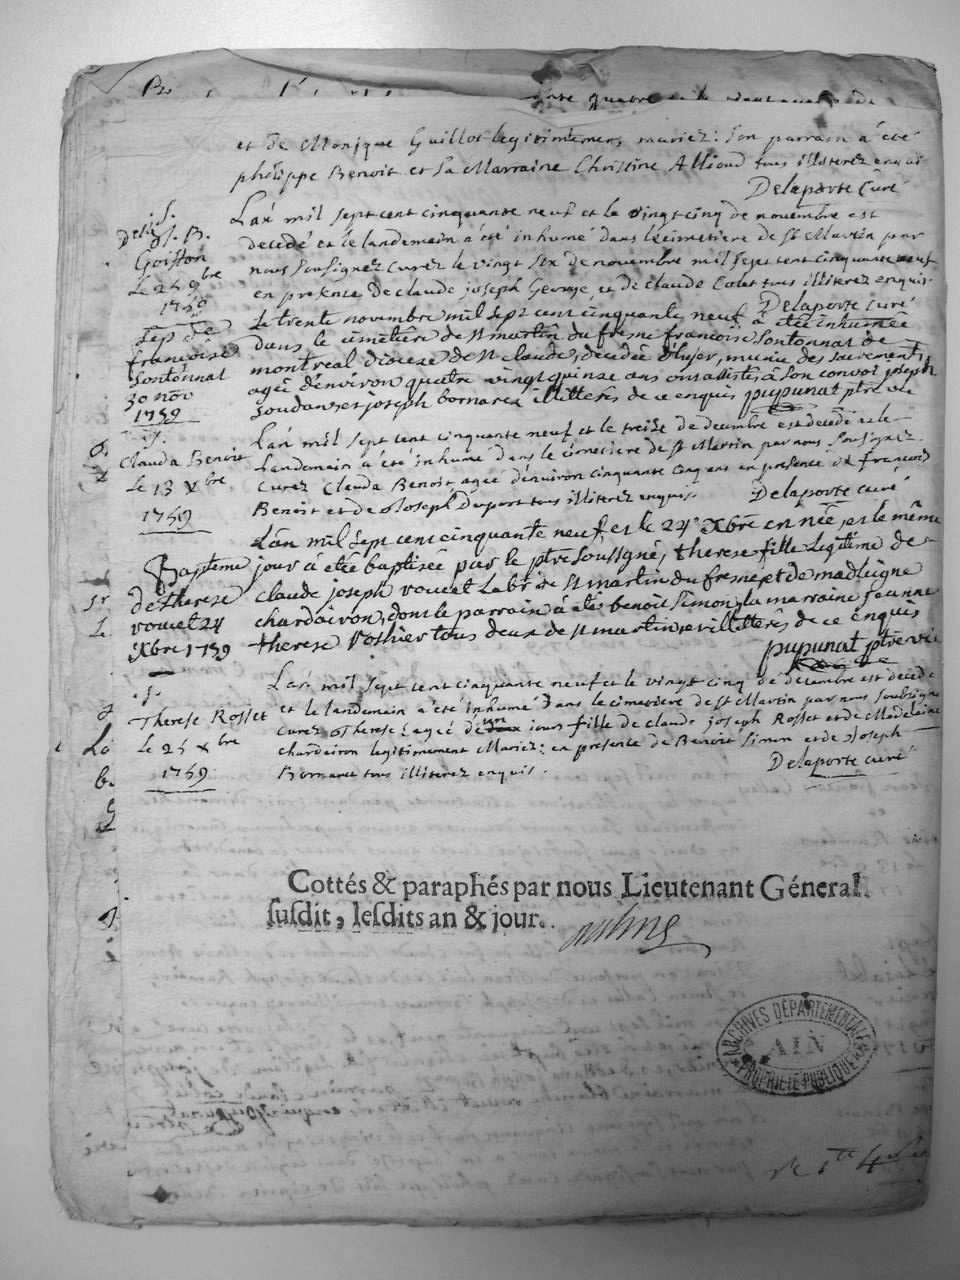 et de Monique Guillot legitimement mariez : son parrain à été
philippe Benoit et sa Marraine Christine Alliod tous illiterez enquis
Delaporte Curé
.S.
L'an mil sept cent cinquante neuf et le vingt-cinq de novembre est
J. B.
decedé et le landemain à été inhumé dans le cimetiere de St Martin par
Goiffon
nous soussignez curez le vingt six de novembre mil sept cent cinquante neuf
Le 24 9bre
en presence de claude joseph George, et de Claude Colet tous illiterez enquis
1759
Delaporte Curé
Sep de
Le trente novembre mil sept cent cinquante neuf à etée inhumée
francoise
dans le cimetière de st martin du fresne francoise sontonnat de
Sontonnat
montreal diocese de st claude, decedée munie des sacrements
30 nov
agée d'environ quatre vingt quinze ans ont assistés à son convoi joseph
1759
et joseph bornarex illiterés de ce enquis pupunat ptre vic
.S.
L'an mil sept cent cinquante neuf et le treize de decembre est decedé et le
Clauda Benoit
Landemain à été inhumé dans le cimetiere de St Martin par nous soussignez
Le 13 Xbre
Curez Clauda Benoit agée d'environ cinquante cinq ans en presence de francois
1759
Benoit et de Joseph Duport tous illiterez enquis.
Delaporte curé
L'an mil sept cent cinquante neuf et le 24e Xbre en née, et le même
Bapteme
jour à etée baptisée par le ptre soussigné, therese fille legitime de
de therese
claude joseph vouet Labri de st martin du fresne et de madleigne
vouet 24
chardairon, dont le parrain à eté benoit simon, la marraine jeanne
Xbre 1759
therese Rothier tous deux de st martin, et illiterés de ce enquis
pupunat ptre vic
.S.
L'an mil sept cent cinquante neuf et le vingt cinq de decembre est decedé
Therese Rosset
et le landemain à été inhumé dans le cimetiere de St Martin par nous soussigné
Le 25 Xbre
curez Therese agée d'un jour fille de claude joseph Rosset et de Madelaine
1759
chardeiron legitimement Mariez : en presence de Benoit Simon et de Joseph
Bornaret tous illiterez enquis.
Delaporte curé
Cottés & paraphés par nous Lieutenant Géneral
susdit, lesdits an & jour.
ARCHIVES DÉPARTEMENTALES
AIN
PROPRIÉTÉ PUBLIQUE